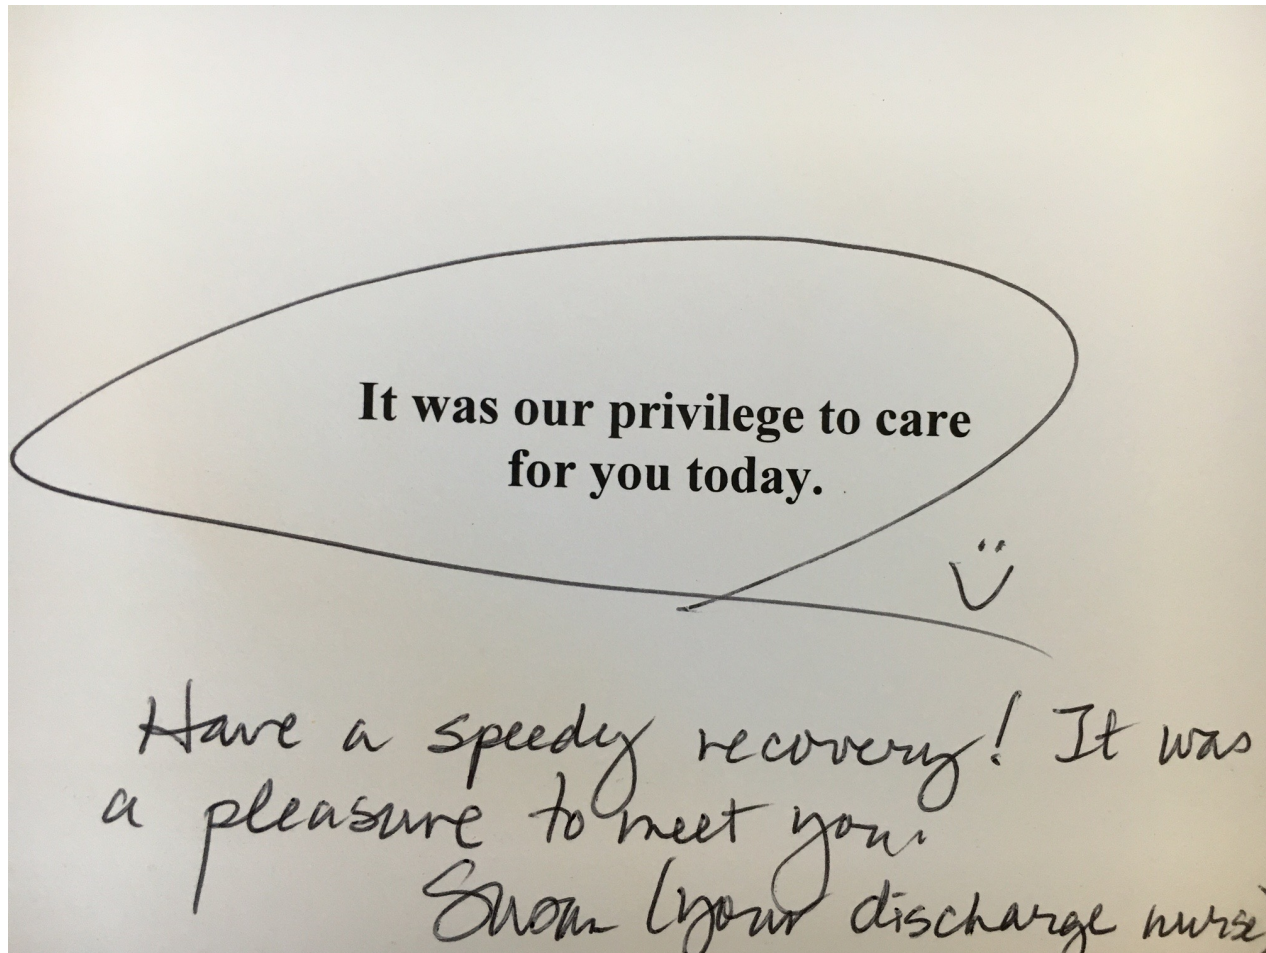 It was our privilege to care
for you today.
Have a speedy recovery! It was
a pleasure to meet you.
Susan (your discharge nurse)